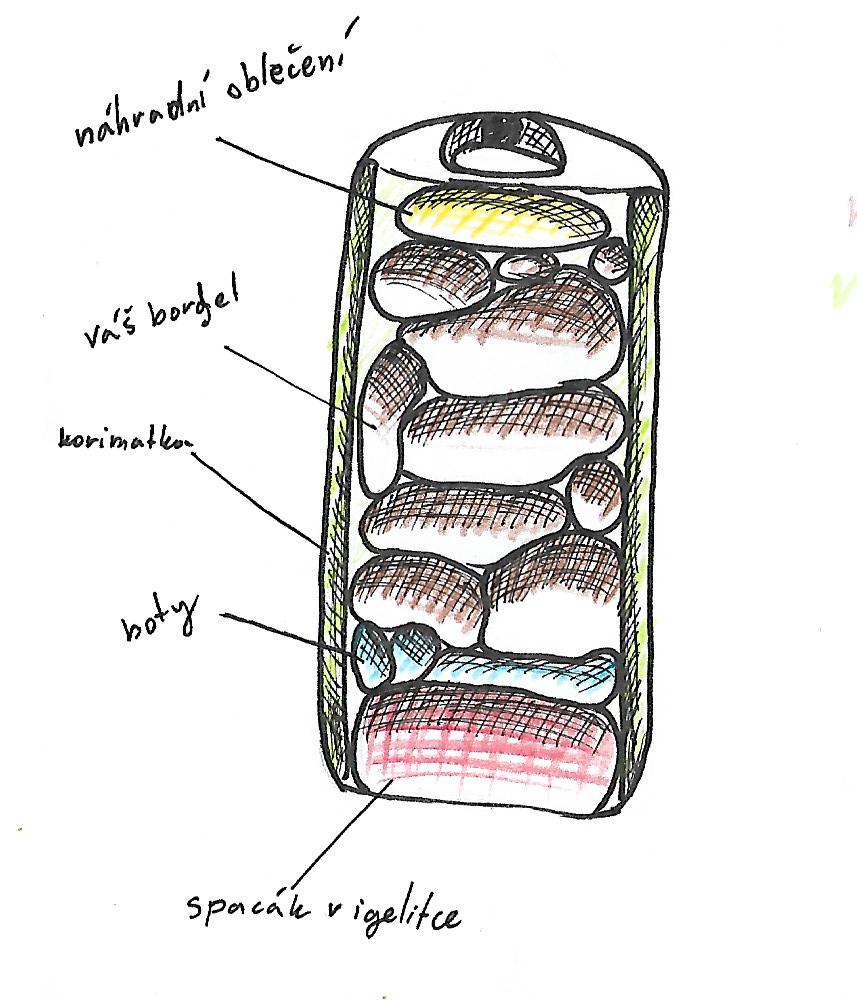 náhradní oblečení
váš bordel
korimatka
boty
spacák v igelitce